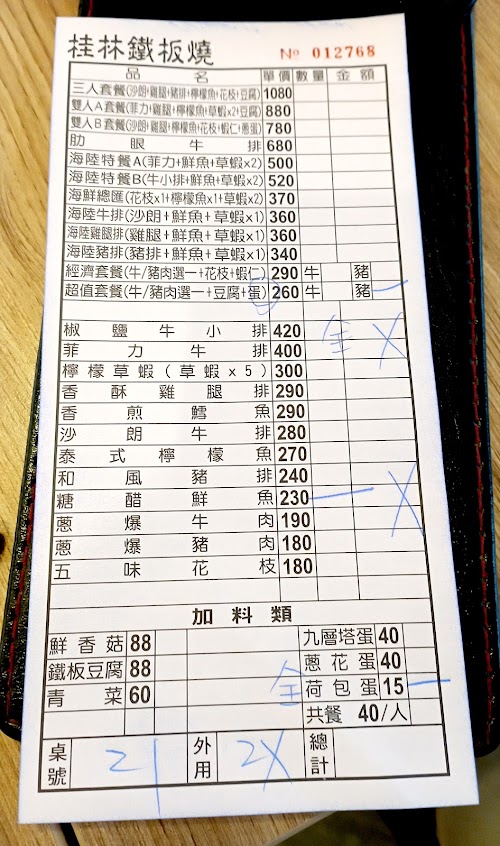 桂林鐵板燒 № 012768
品名 單價 數量 金額
三人套餐(沙朗+雞腿+豬排+檸檬魚+花枝+豆腐) 1080
雙人A套餐(菲力+雞腿+檸檬魚+草蝦x2+豆腐) 880
雙人B套餐(沙朗+雞腿+檸檬魚+花枝+蝦仁+蔥蛋) 780
肋眼牛排 680
海陸特餐A(菲力+鮮魚+草蝦×2) 500
海陸特餐B(牛小排+鮮魚+草蝦×2) 520
海鮮總匯(花枝x1+檸檬魚x1+草蝦x2) 370
海陸牛排(沙朗+鮮魚+草蝦x1) 360
海陸雞腿排(雞腿+鮮魚+草蝦x1) 360
海陸豬排(豬排+鮮魚+草蝦x1) 340
經濟套餐(牛/豬肉選一+花枝+蝦仁) 290 牛 豬
超值套餐(牛/豬肉選一+豆腐+蛋) 260 牛 豬 一
椒鹽牛小排 420 全 X
菲力牛排 400
檸檬草蝦(草蝦x5) 300
香酥雞腿排 290
香煎鱈魚 290
沙朗牛排 280
泰式檸檬魚 270
和風豬排 240
糖醋鮮魚 230 一 X
蔥爆牛肉 190
蔥爆豬肉 180
五味花枝 180
加料類
鮮香菇 88 九層塔蛋 40
鐵板豆腐 88 蔥花蛋 40
青菜 60 全 荷包蛋 15 一
共餐 40/人
桌號 21 外用 2X 總計